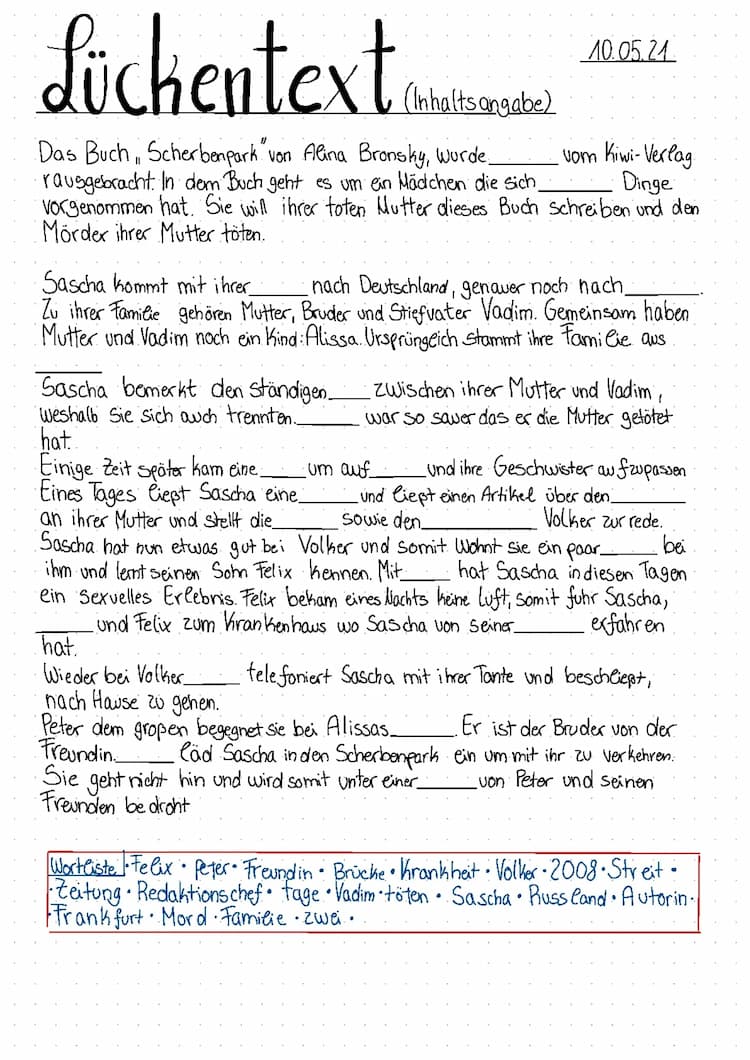 Lückentext (Inhaltsangabe) 10.05.21
Das Buch „Scherbenpark" von Alina Bronsky, wurde ______ vom Kiwi-Verlag
rausgebracht. In dem Buch geht es um ein Mädchen die sich ______ Dinge
vorgenommen hat. Sie will ihrer toten Mutter dieses Buch schreiben und den
Mörder ihrer Mutter töten.
Sascha kommt mit ihrer ______ nach Deutschland, genauer noch nach ______.
Zu ihrer Familie gehören Mutter, Bruder und Stiefvater Vadim. Gemeinsam haben
Mutter und Vadim noch ein Kind: Alissa. Ursprünglich stammt ihre Familie aus
______
Sascha bemerkt den ständigen ____ zwischen ihrer Mutter und Vadim,
weshalb sie sich auch trennten. ______ war so sauer das er die Mutter getötet
hat.
Einige Zeit später kam eine ____ um auf ____ und ihre Geschwister aufzupassen
Eines Tages ließt Sascha eine ______ und ließt einen Artikel über den ______
an ihrer Mutter und stellt die ______ sowie den __________ Volker zur rede.
Sascha hat nun etwas gut bei Volker und somit Wohnt sie ein paar ______ bei
ihm und lernt seinen Sohn Felix kennen. Mit ____ hat Sascha in diesen Tagen
ein sexuelles Erlebnis. Felix bekam eines Nachts keine Luft, somit fuhr Sascha,
______ und Felix zum Krankenhaus wo Sascha von seiner ______ erfahren
hat.
Wieder bei Volker ______ telefoniert Sascha mit ihrer Tante und beschließt,
nach Hause zu gehen.
Peter dem großen begegnet sie bei Alissas ______. Er ist der Bruder von der
Freundin. ______ läd Sascha in den Scherbenpark ein um mit ihr zu verkehren.
Sie geht nicht hin und wird somit unter einer ______ von Peter und seinen
Freunden bedroht
Wortliste • Felix • Peter • Freundin • Brücke • Krankheit • Volker • 2008 • Streit •
• Zeitung • Redaktionschef • Tage • Vadim • töten • Sascha • Russland • Autorin •
• Frankfurt • Mord • Familie • zwei •